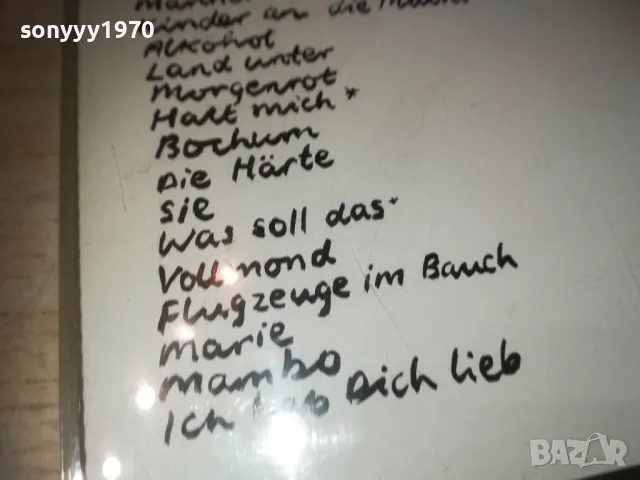 sonyyy1970
Kinder an die Macht
Alkohol
Land unter
Morgenrot
Halt mich*
Bochum
Die Härte
Sie
Was soll das*
Vollmond
Flugzeuge im Bauch
Marie
Mambo
Ich hab Dich lieb
BAZAR